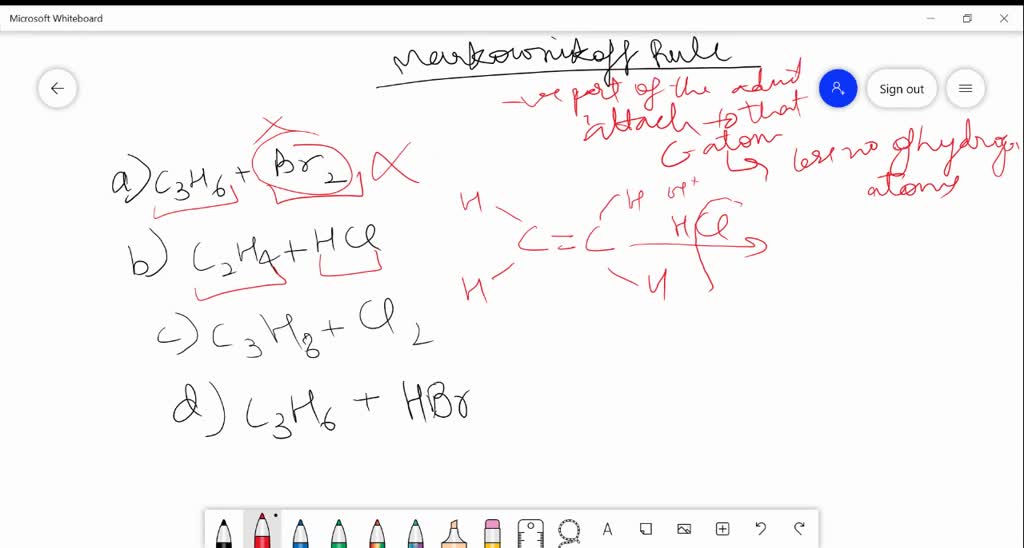 Microsoft Whiteboard
Markownikoff Rule
-ve part of the adnd
attach to that
C-atom
less no of hydrogen
atoms
Sign out
a) C3H6 + Br2
b) C2H4 + HCl
c) C3H8 + Cl2
d) C3H6 + HBr
H H H+
C = C HCl
H H
A